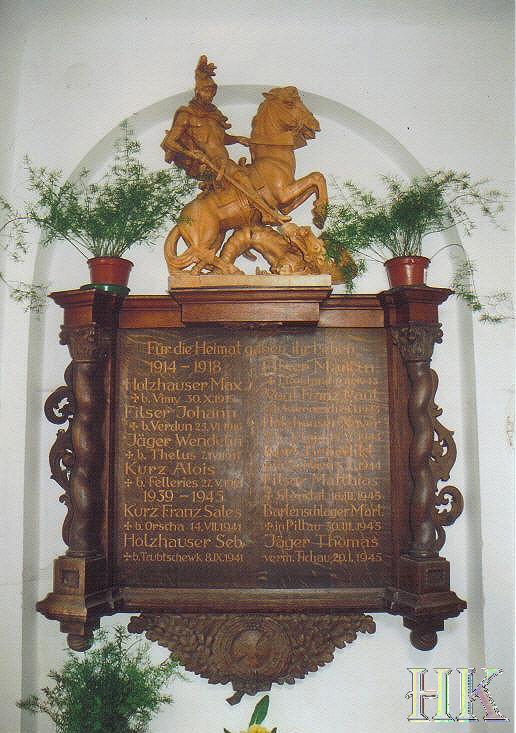 Für die Heimat gaben ihr Leben
1914 - 1918
Holzhauser Max
b. Vimy 30.X.1915
Filser Johann
b. Verdun 23.VI.1916
Jäger Wendelin
b. Thelus
Kurz Alois
b. Felleries
1939 - 1945
Kurz Franz Sales
b. Orscha 14.VII.1941
Holzhauser Seb.
b. Trubtschewk 8.IX.1941
Filser Martin
Kurz Franz Paul
Holzhauser Xaver
Kurz Benedikt
1944
Filser Matthias
b. Stendal 16.III.1945
Bartenschlager Mart.
in Pillau 30.III.1945
Jäger Thomas
verm. Tichau 20.I.1945
HK